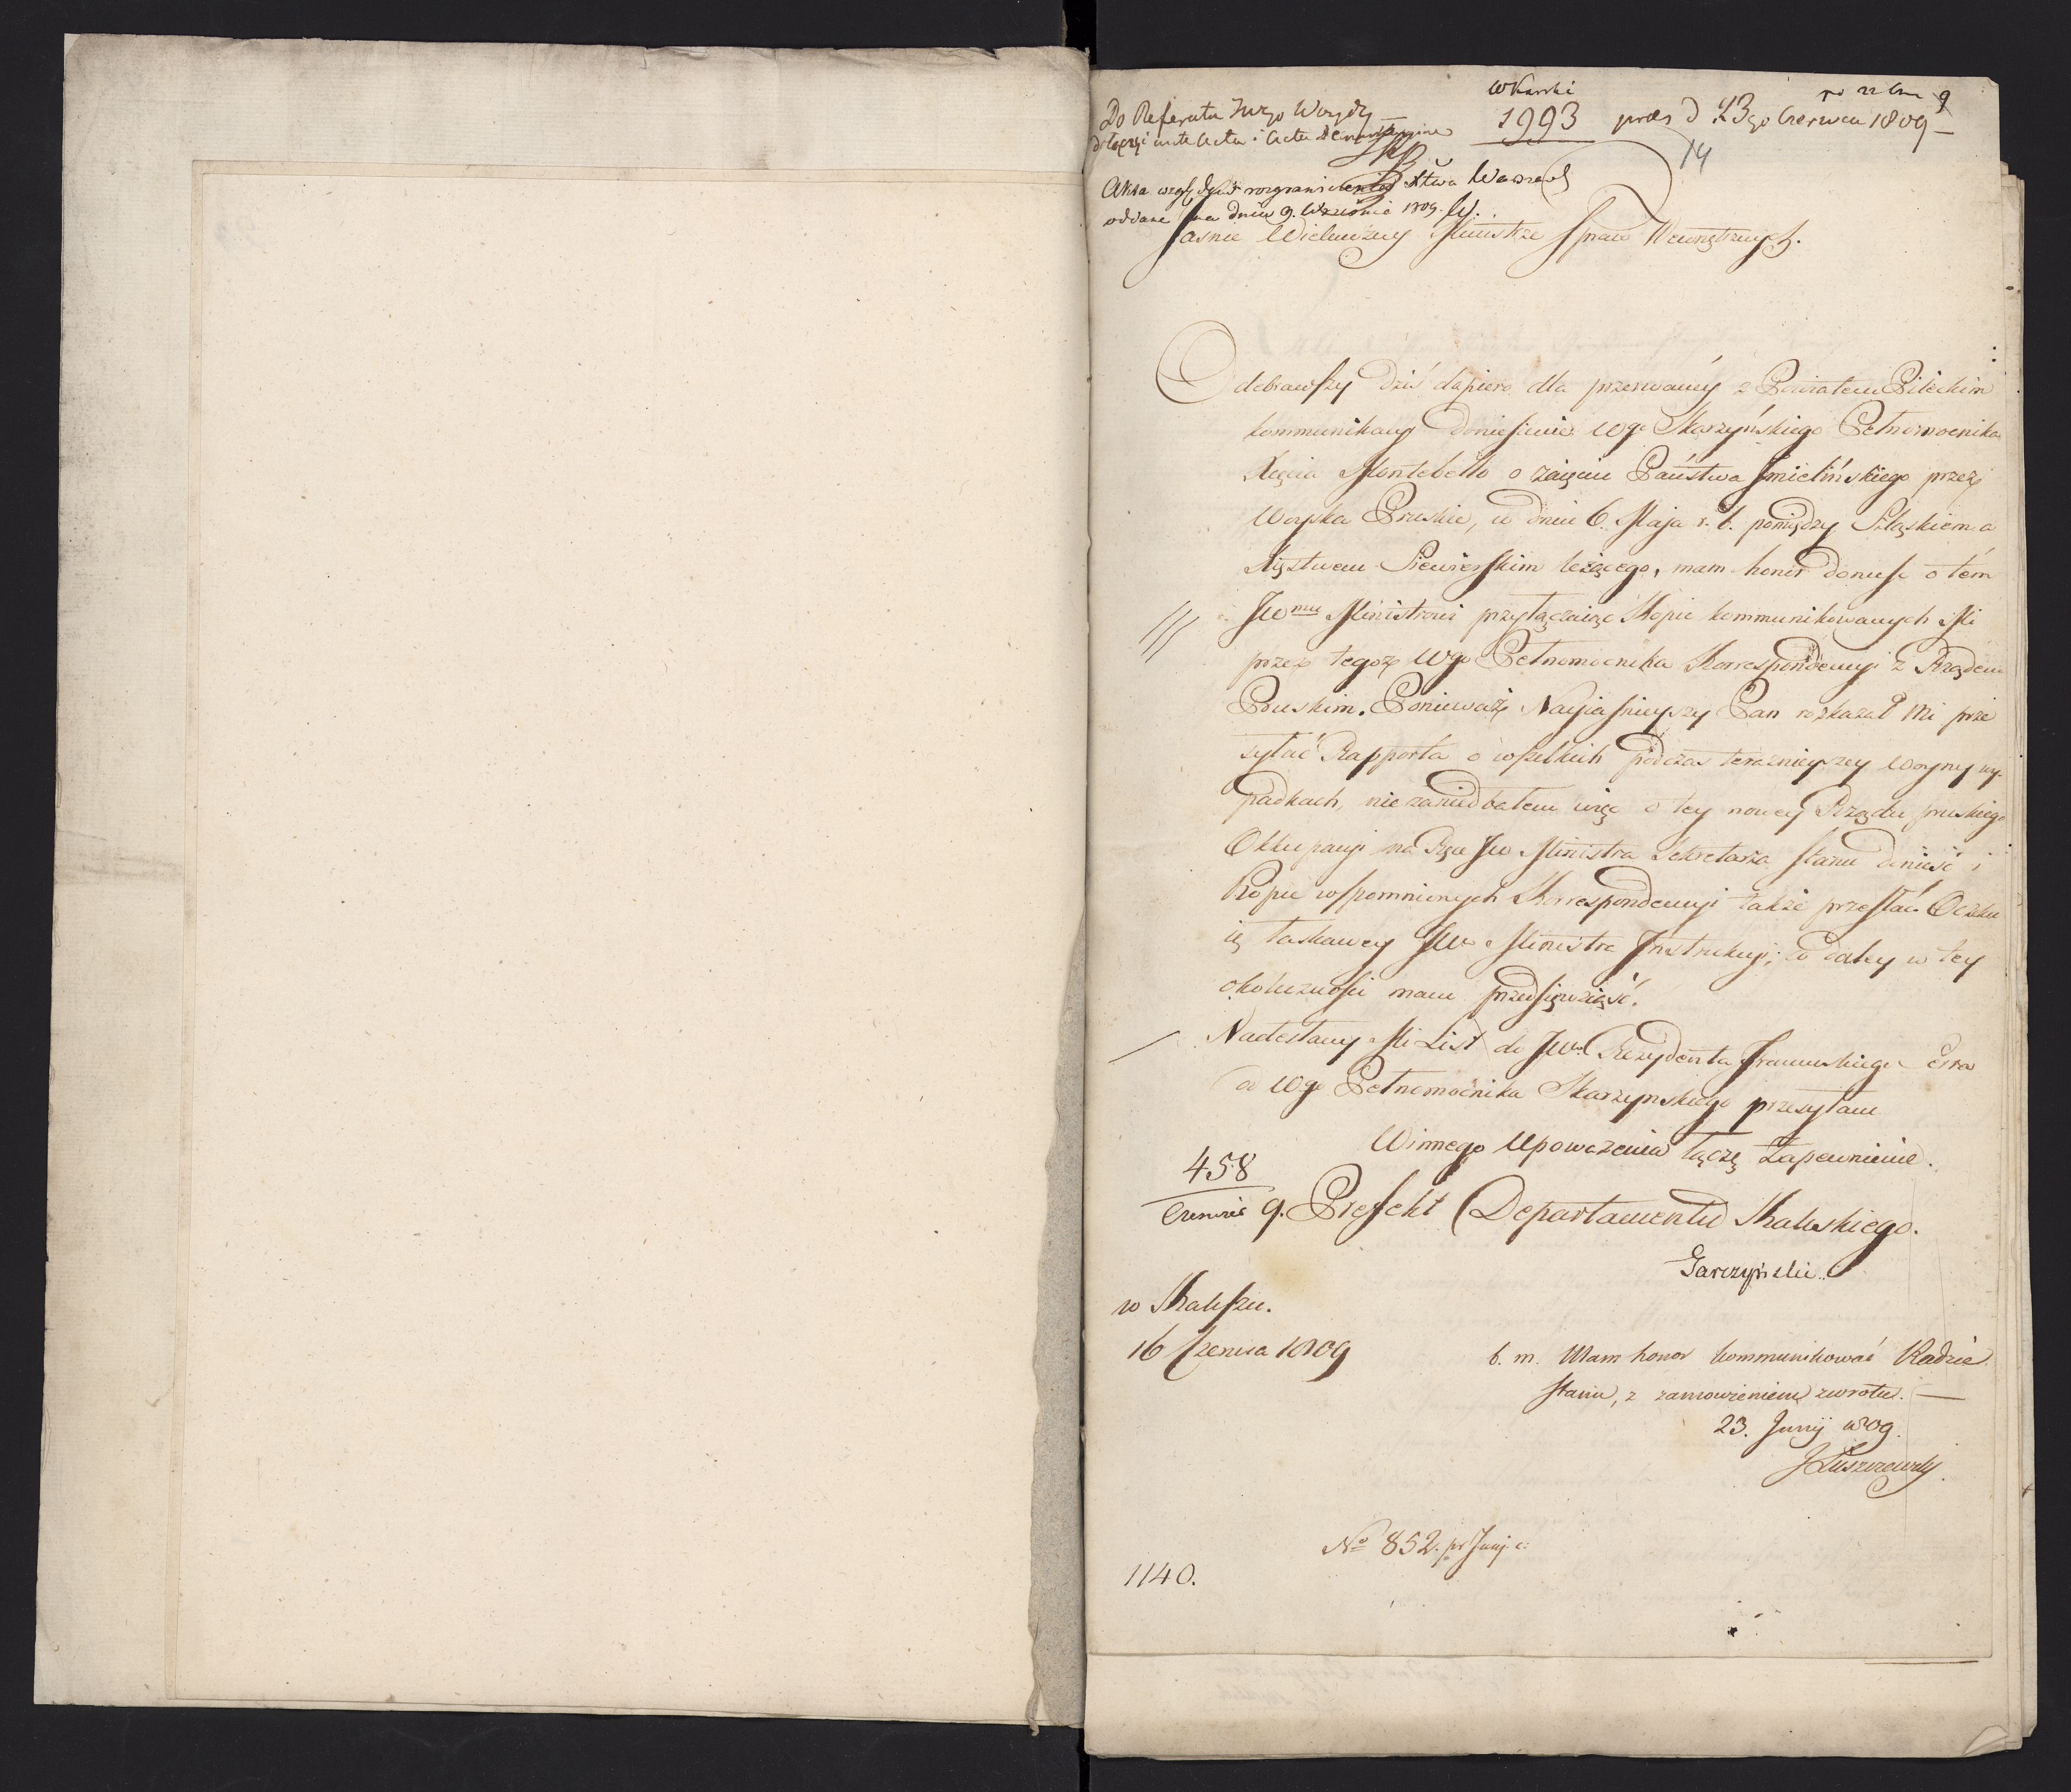 Do Referatu
1993 praes d 23go Czerwca 1809 —
14
oddane dnia 9. Września 1809.
Jaśnie Wielmożny Ministrze Spraw Wewnętrznych.
Odebrawszy dziś dopiero dla przerwaney z Powiatem Pileckim
kommunikacyi doniesienie Wgo Skarzyńskiego Pełnomocnika
Xięcia Montebello o zaięciu Państwa Jmielińskiego przez
Woyska Pruskie, w dniu 6. Maja r. b. pomiędzy Szląskiem a
Xięstwem Siewierskim leżącego, mam honor donieść o tém
JWmu Ministrowi przyłączaiąc Kopie kommunikowanych Mi
przez tegoż Wgo Pełnomocnika Korrespondencyi z Rządem
Pruskim. Ponieważ Nayjaśnieyszy Pan rozkazał Mi prze
syłać Rapporta o wszelkich podczas teraznieyszey Woyny wy-
padkach, niezaniedbałem więc o tey nowey Rządu pruskiego
Okkupacyi na Ręce JW Ministra Sekretarza Stanu donieść i
Kopie wspomnionych Korrespondencyi także przesłać. Oczku
ię łaskawey JWo Ministra Jnstrukcyi, co daley w tey
okoliczności mam przedsięwziąść.
Nadesłany Mi List do JWo Rezydenta Francuskiego Serra
od Wgo Pełnomocnika Skarzynskiego przesyłam
Winnego Upoważenia łączę Zapewnienie.
458
Czerwiec 9. Prefekt Departamentu Kaliskiego.
Garczyński
w Kaliszu.
16 Czerwca 1809
b. m. Mam honor kommunikować Radzie
Stanu, z zamowieniem zwrotu. —
23. Junij 1809.
JŁuszczewski
No 852. pr Junij. c:
1140.